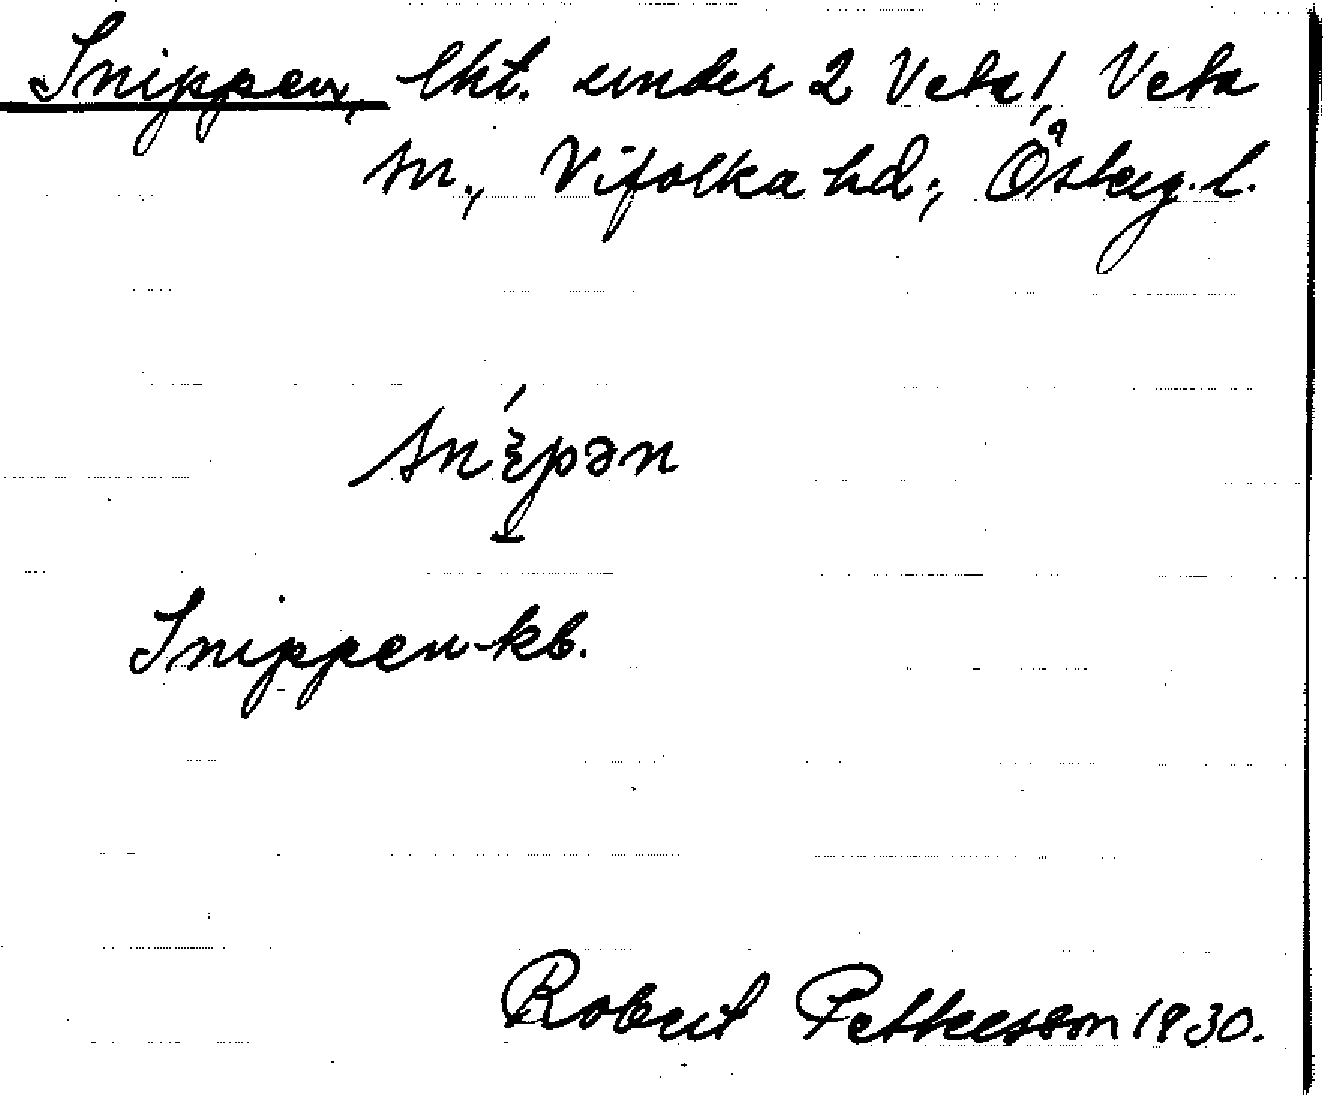 Snippen, lht. under 2 Veta!, Veta
sn., Vifolka hd., Östg. l.
Snippen kb.
Robert Pettersson 1930.